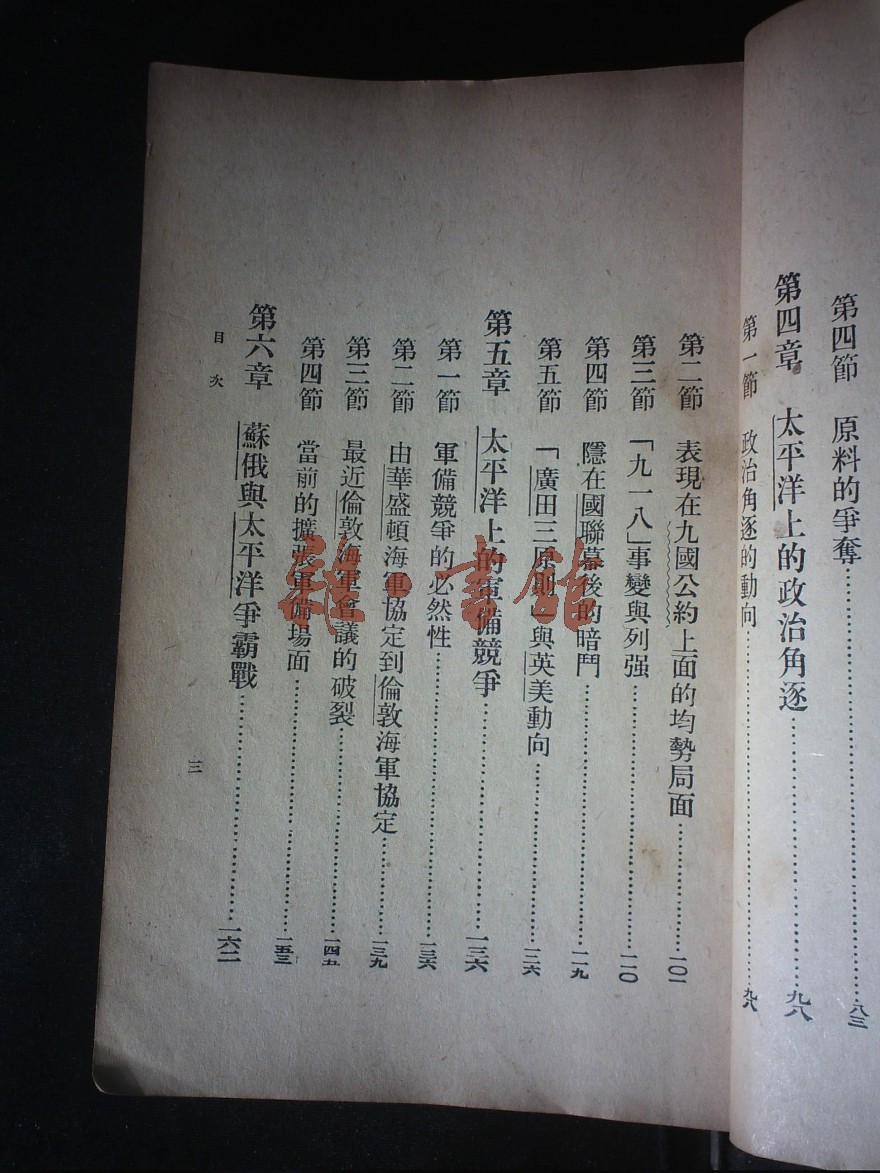 第四節 原料的爭奪……八三
第四章 太平洋上的政治角逐……九八
第一節 政治角逐的動向……九八
第二節 表現在九國公約上面的均勢局面……一〇一
第三節 「九一八」事變與列强……一一〇
第四節 隱在國聯幕後的暗鬥……一一九
第五節 「廣田三原則」與英美動向……一二六
第五章 太平洋上的軍備競爭……一三六
第一節 軍備競爭的必然性……一三六
第二節 由華盛頓海軍協定到倫敦海軍協定……一三九
第三節 最近倫敦海軍會議的破裂……一四五
第四節 當前的擴張軍備場面……一五三
第六章 蘇俄與太平洋爭霸戰……一六二
目次
三